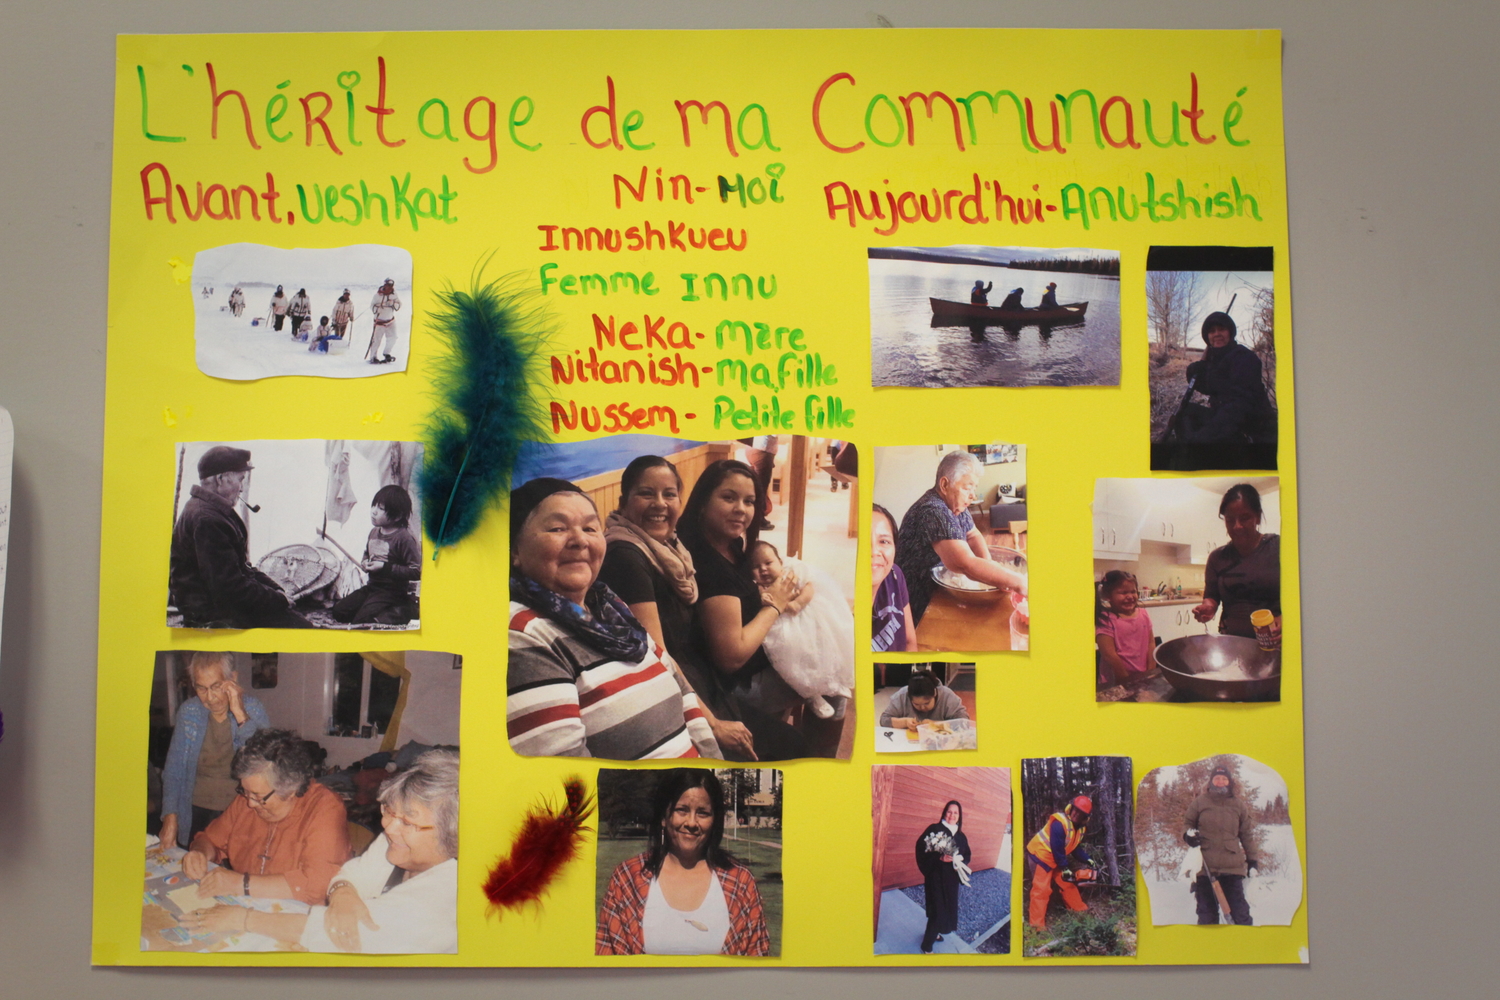 L'héritage de ma Communauté
Avant, ueshkat
Nin-Moi
Innushkueu
Femme Innu
Neka-mère
Nitanish-ma fille
Nussem-Petite fille
Aujourd'hui-Anutshish